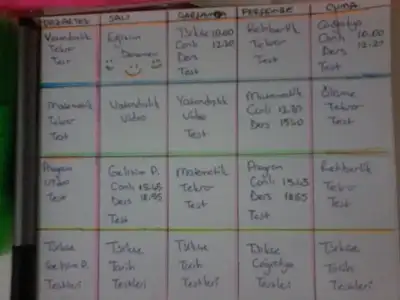 PAZARTESİ
SALI
ÇARŞAMBA
PERŞEMBE
CUMA
Vatandaşlık
Tekrar
Test
Eğitim
Denemesi
Türkçe 10.00
Canlı 12.20
Ders
Test
Rehberlik
Tekrar
Test
Coğrafya
Canlı 10.00
Ders 12.20
Test
Matematik
Tekrar
Test
Vatandaşlık
Video
Vatandaşlık
Video
Test
Matematik
Canlı
Ders
Test
Ölçme
Tekrar
Test
Program
Video
Test
Gelişim P.
Canlı 15.45
Ders
Test
Matematik
Tekrar
Test
Program
Canlı 15.45
Ders
Test
Rehberlik
Tekrar
Test
Türkçe
Gelişim P.
Testleri
Türkçe
Tarih
Testleri
Türkçe
Tarih
Testleri
Türkçe
Coğrafya
Testleri
Türkçe
Tarih
Testleri